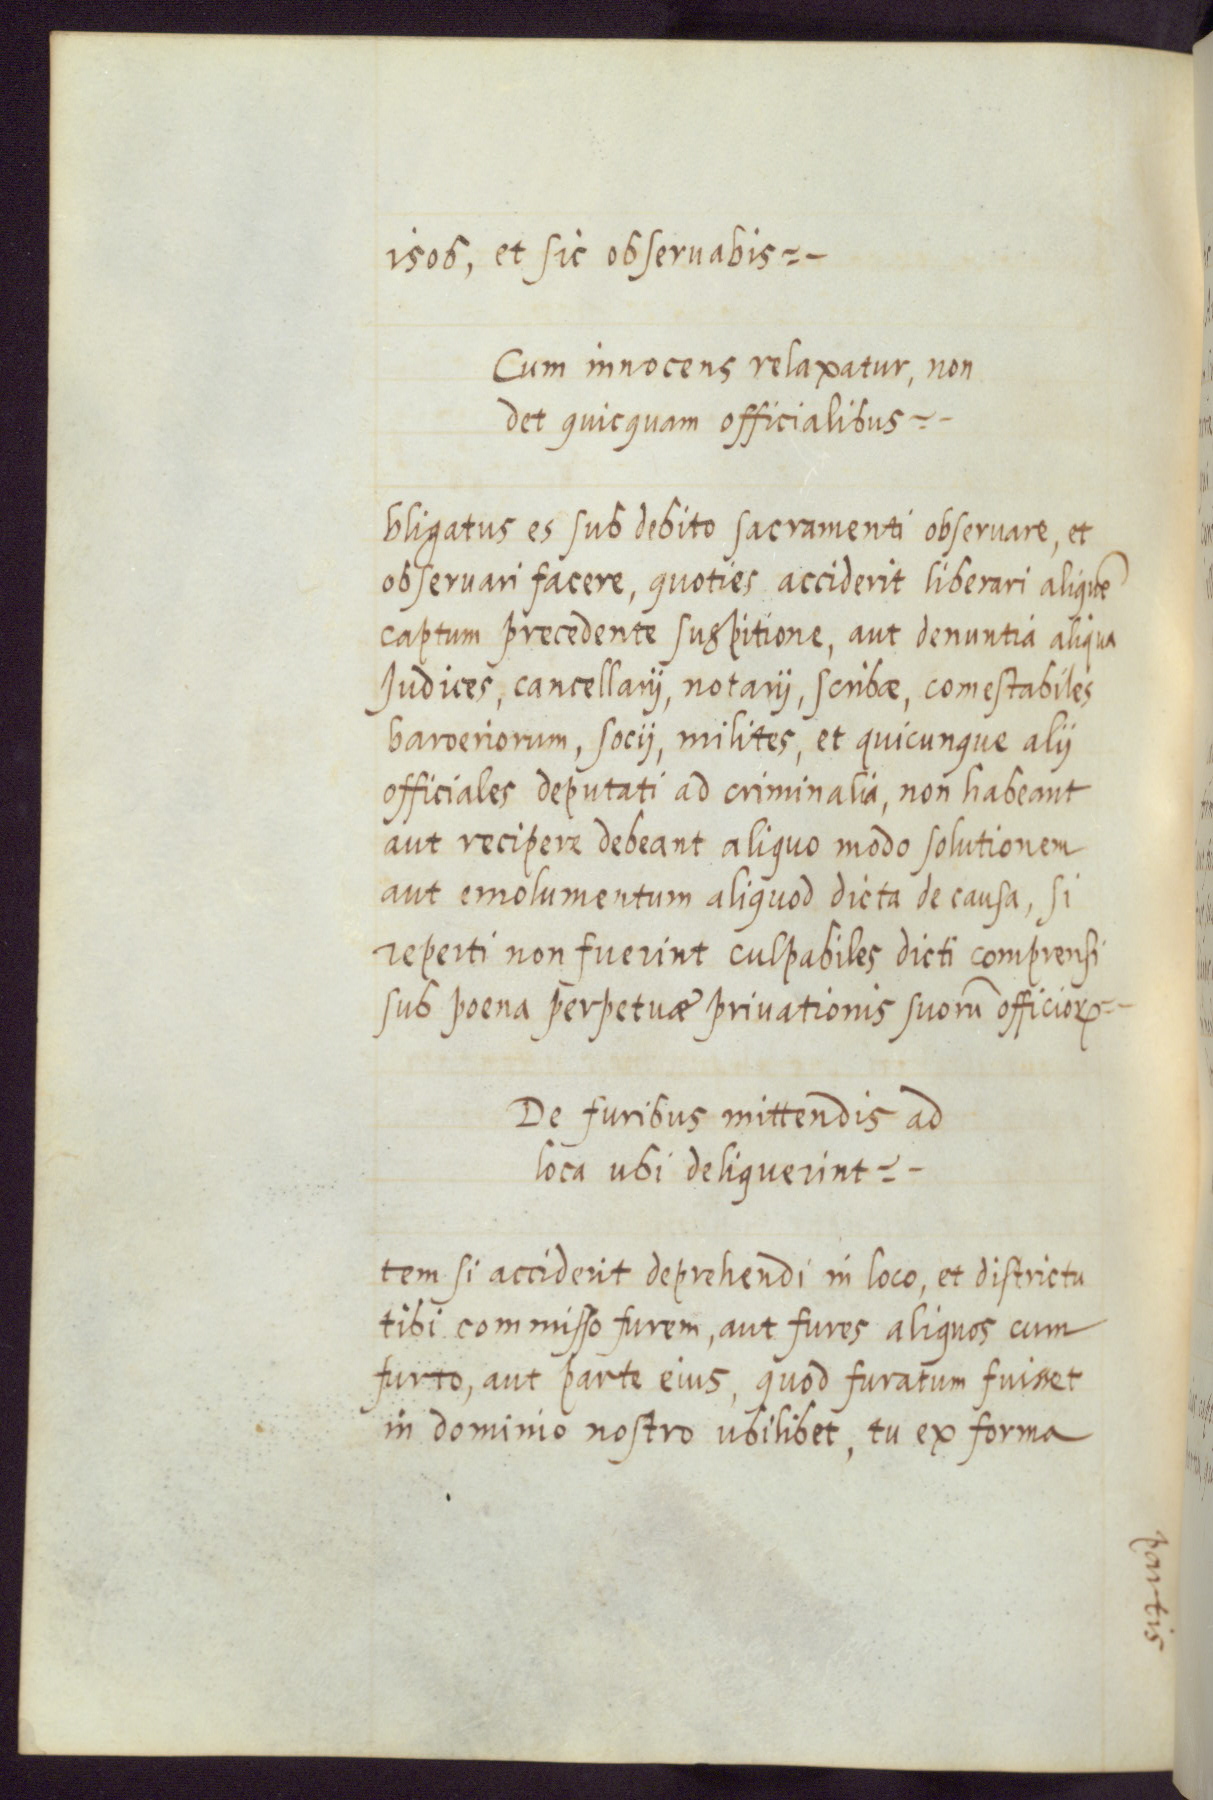 1506, et sic obseruabis=-
Cum innocens relaxatur, non
det quicquam officialibus=-
bligatus es sub debito sacramenti obseruare, et
obseruari facere, quoties acciderit liberari aliquē
captum precedente suspitione, aut denuntia aliqua
Judices, cancellarij, notarij, scribæ, comestabiles
baroeriorum, socij, milites, et quicunque alij
officiales deputati ad criminalia, non habeant
aut recipere debeant aliquo modo solutionem
aut emolumentum aliquod dicta de causa, si
reperti non fuerint culpabiles dicti comprensi
sub poena perpetuæ priuationis suorū officioꝝ=-
De furibus mittendis ad
loca ubi deliquerint=-
tem si acciderit deprehendi in loco, et districtu
tibi commisso furem, aut fures aliquos cum
furto, aut parte eius, quod furatum fuisset
in dominio nostro ubilibet, tu ex forma
partis